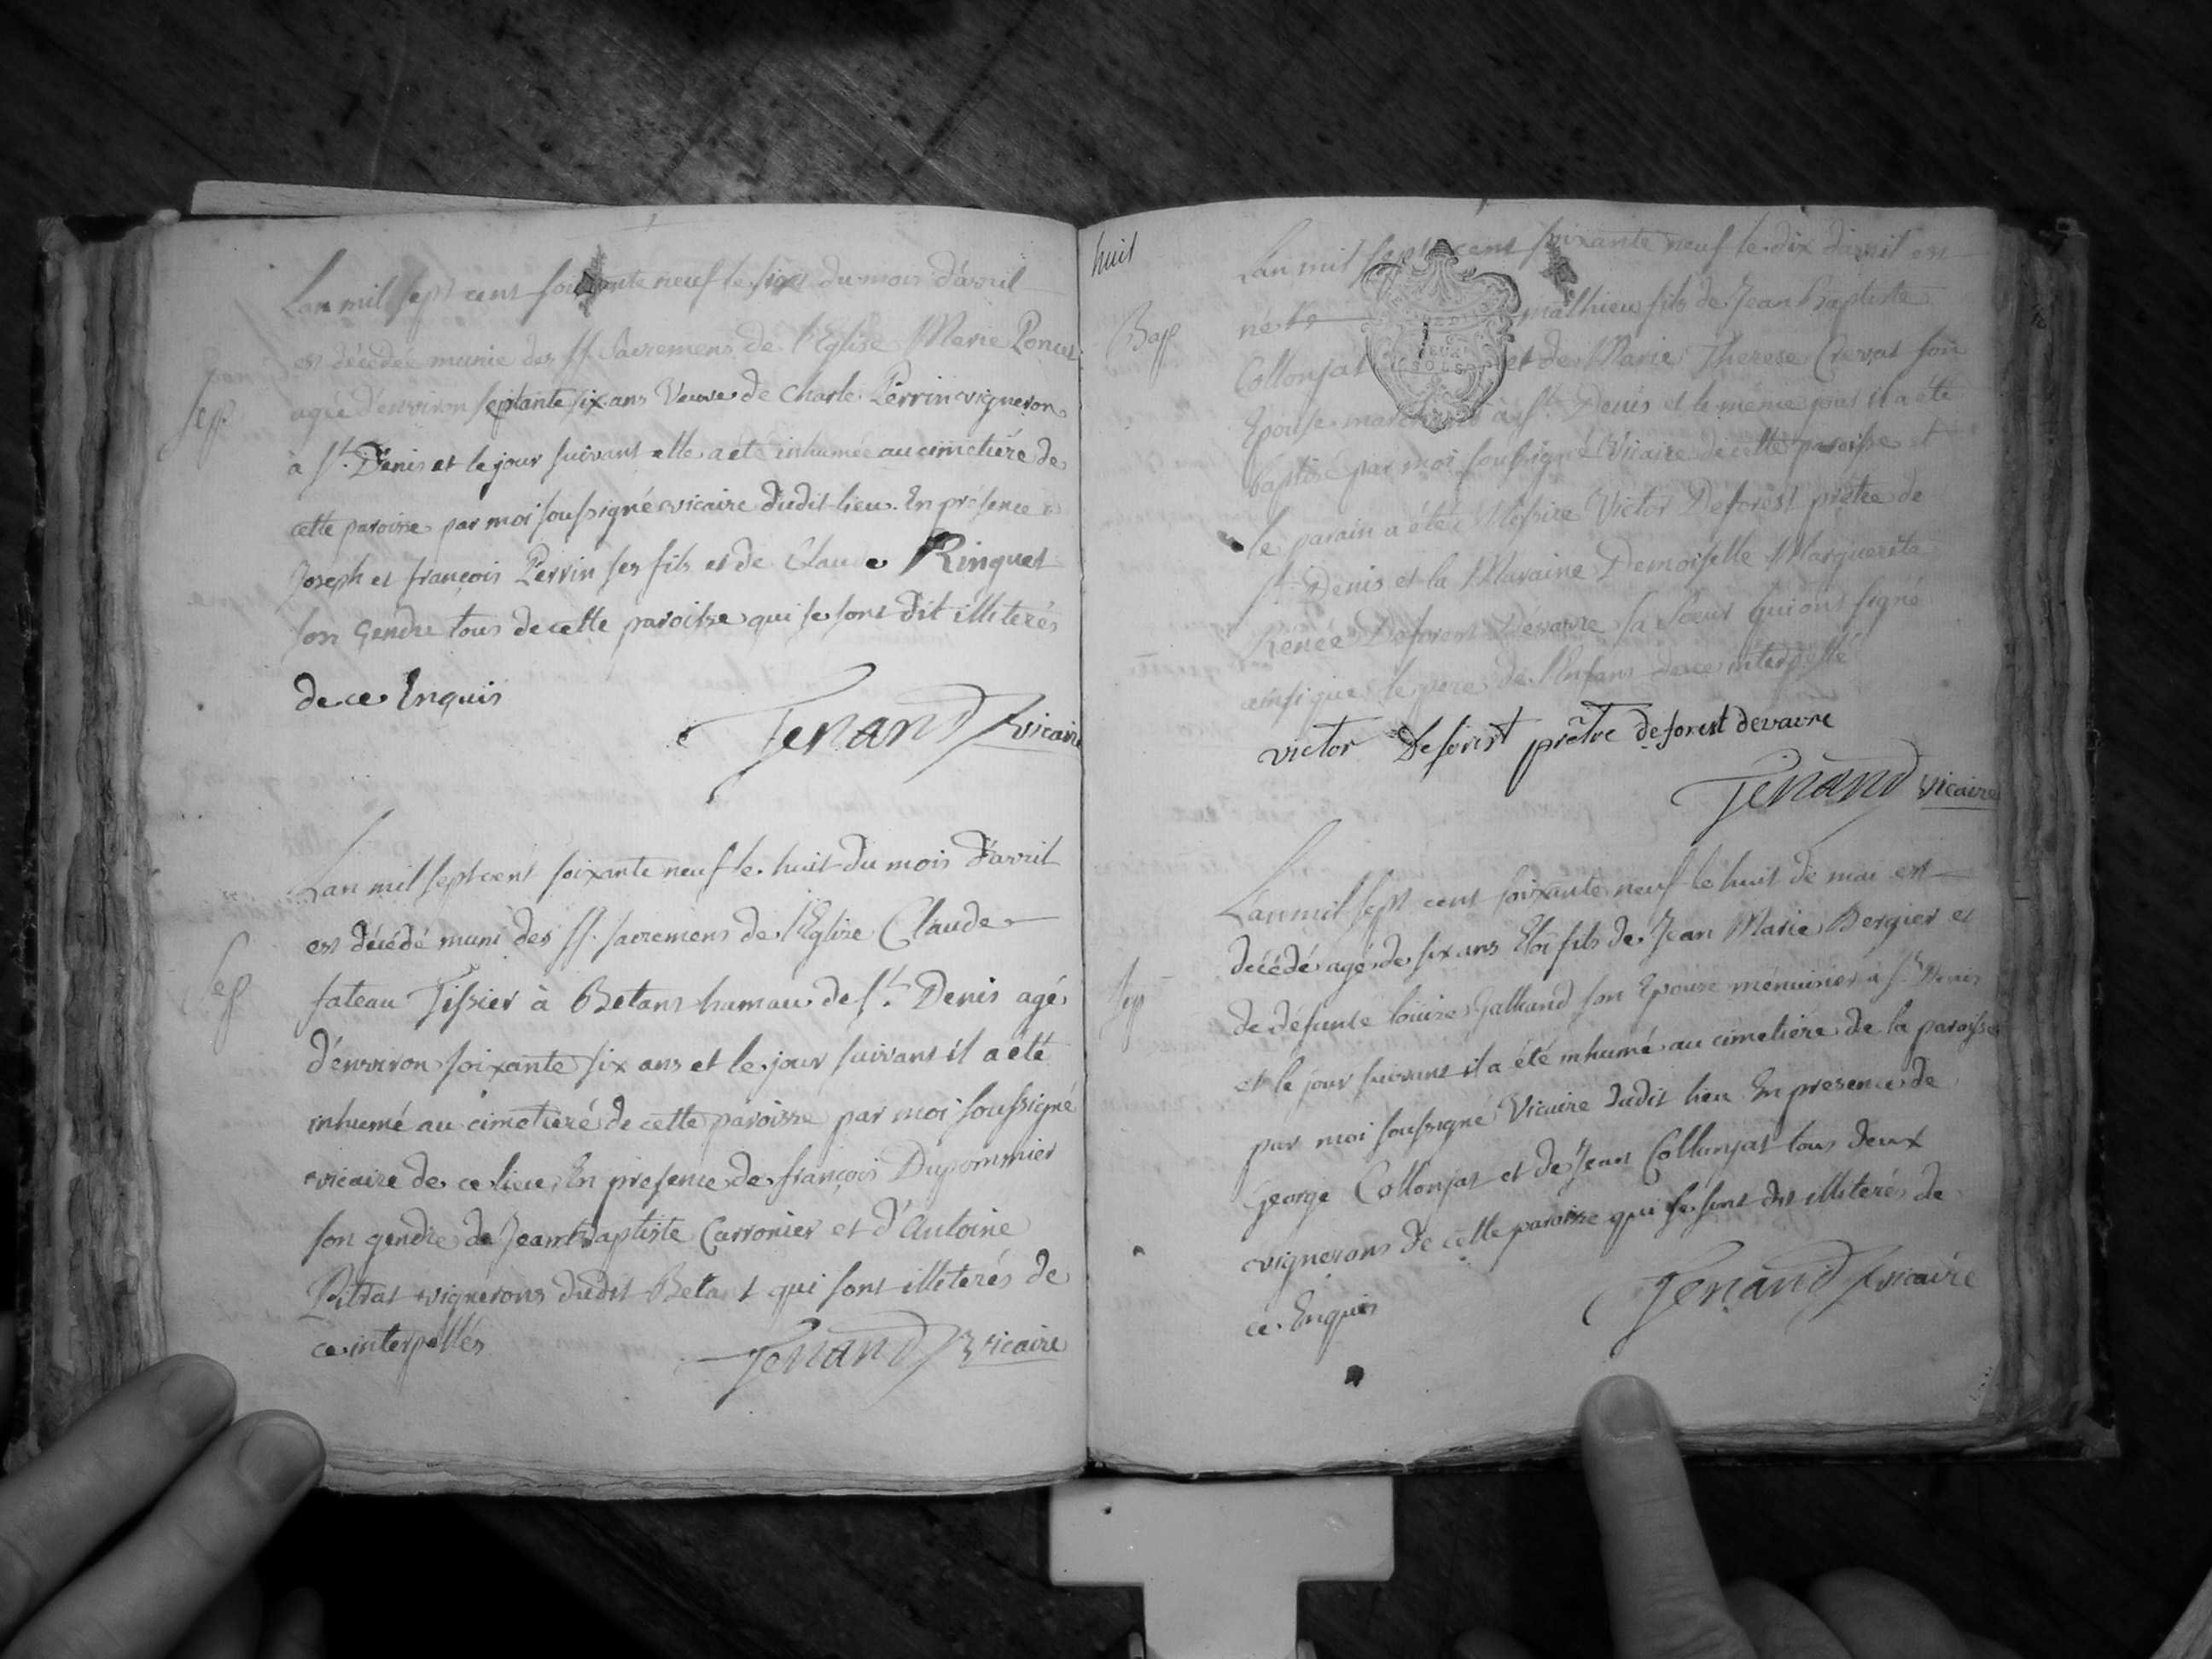 Lan mil sept cent soixante neuf le six du mois d'avril
est décédée munie des ss. Sacremens de l'Eglise Marie Poncet
agée d'environ septante six ans Veuve de Charle Perrin vigneron
Sep.
à st. Denis et le jour suivant elle a été inhumée au cimetiére de
cette paroisse par moi soussigné vicaire dudit lieu. En présence de
Joseph et françois Perrin ses fils et de Claude Ringuet
son Gendre tous de cette paroisse qui se sont dit illiterés
de ce Enquis
Tenand vicaire
Lan mil sept cent soixante neuf le huit du mois d'avril
est décédé muni des ss. sacremens de l'Eglise Claude
Sep
fateau Tissier à Betant hamau de st. Denis agé
d'environ soixante six ans et le jour suivant il a été
inhumé au cimetiere de cette paroisse par moi soussigné
vicaire de ce lieu, En présence de françois Dupommier
son gendre de Jean Baptiste Carronier et d'Antoine
Pitrat vignerons dudit Betant qui sont illiterés de
ce interpellés
Tenand vicaire
huit
Lan mil sept cent soixante neuf le dix d'avril est
Bap
né mathieu fils de Jean Baptiste
Collonjat et de Marie Therese Crevat son
DEUX
SOLS
Epouse marchands à st. Denis et le même jour il a été
baptisé par moi soussigné Vicaire de cette paroisse et
le parain a été Messire Victor Deforest prêtre de
st. Denis et la Maraine Demoiselle Marguerite
Rénée Deforest Devavre sa soeur qui ont signé
ainsi que le pere de l'Enfant de ce interpellé
victor Deforest prêtre deforest devavre
Tenand vicaire
Lan mil sept cent soixante neuf le huit de mai est
décédé agé de six ans Eloi fils de Jean Marie Bergier et
Sep
de défunte louise Galland son Epouse ménuisier à st. Denis
et le jour suivant il a été inhumé au cimetiere de la paroisse
par moi soussigné Vicaire dudit lieu En presence de
George Collonjat et de Jean Collonjat tous deux
vignerons de cette paroisse qui se sont dit illiterés de
ce Enquis
Tenand vicaire